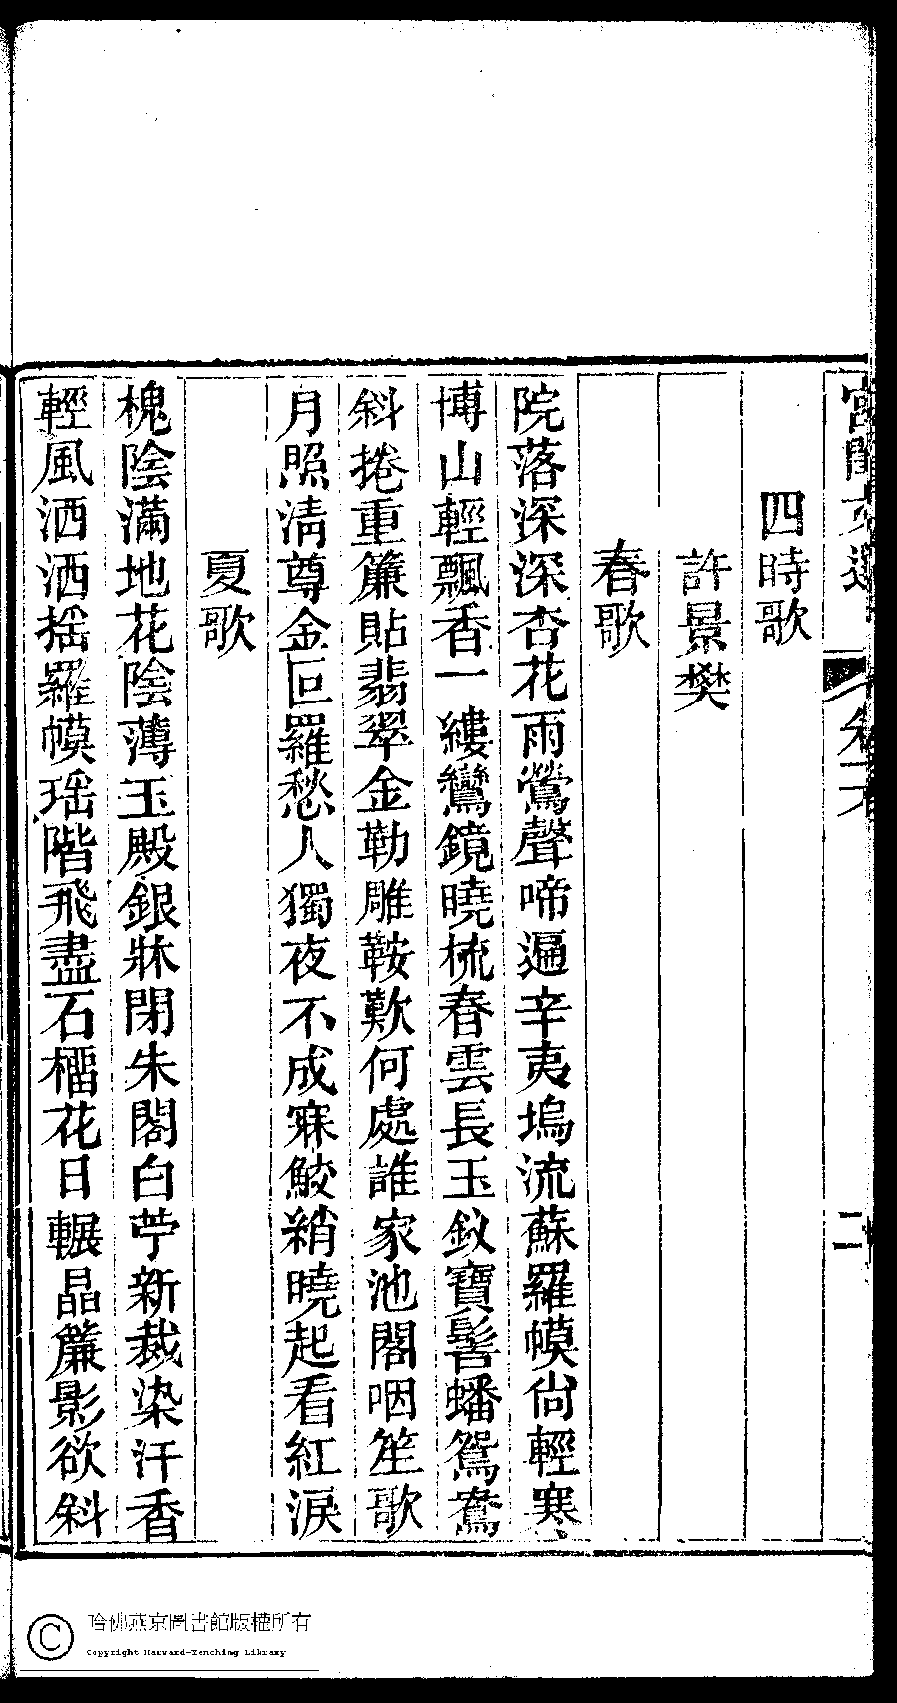 宮閨文選 卷二 二
四時歌
許景樊
春歌
院落深深杏花雨鶯聲啼遍辛夷塢流蘇羅幙尙輕寒
博山輕飄香一縷鸞鏡曉梳春雲長玉釵寶髻蟠鴛鴦
斜捲重簾貼翡翠金勒雕鞍歎何處誰家池閣咽笙歌
月照淸尊金叵羅愁人獨夜不成寐鮫綃曉起看紅淚
夏歌
槐陰滿地花陰薄玉殿銀牀閉朱閣白苧新裁染汗香
輕風洒洒揺羅幙瑶階飛盡石榴花日輾晶簾影欲斜
哈佛燕京圖書館版權所有
Copyright Harvard-Yenching Library